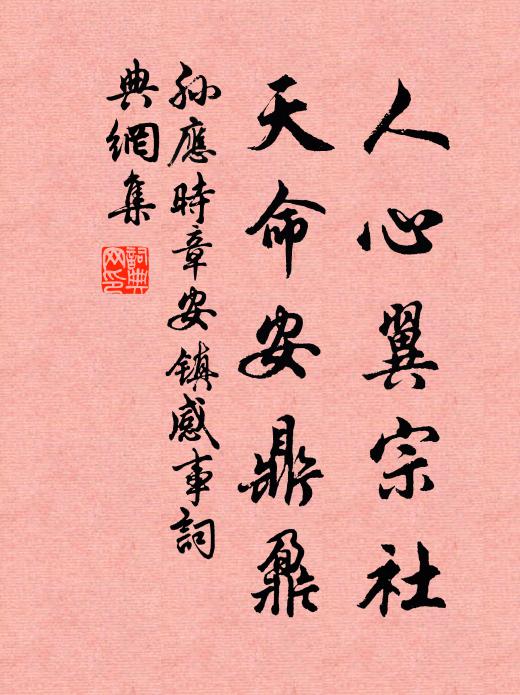 人心翼宗社
天命安鼎鼐
孙應時章安镇感事詞
典網集
詞典
网印